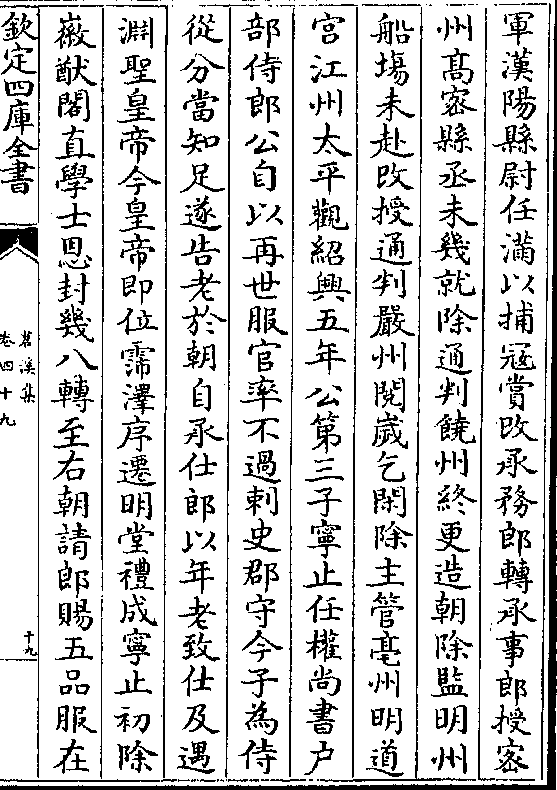 軍漢陽縣尉任滿以捕冦賞改承務郎轉承事郎授密
州髙密縣丞未幾就除通判饒州終更造朝除監明州
船塲未赴改授通判嚴州閱歲乞閑除主管亳州明道
宫江州太平觀紹興五年公第三子寧止任權尚書户
部侍郎公自以再世服官率不過刺史郡守今子為侍
從分當知足遂告老於朝自承仕郎以年老致仕及遇
淵聖皇帝今皇帝即位霈澤序遷明堂禮成寧止初除
徽猷閣直學士恩封幾八轉至右朝請郎賜五品服在
欽定四庫全書
苕溪集
卷四十九
十九